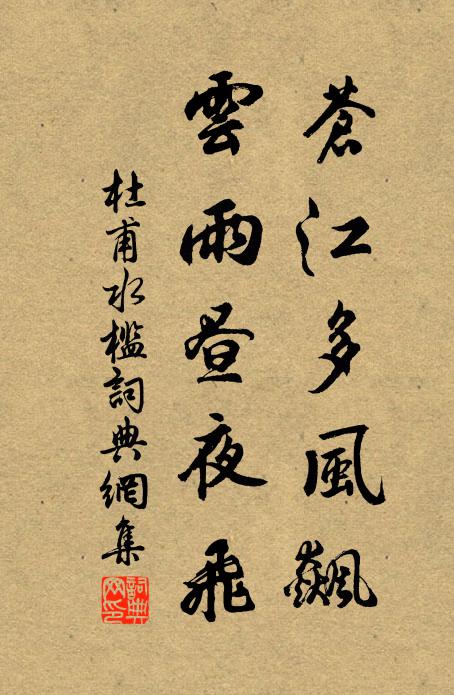 蒼江多風飆
雲雨晝夜飛
杜甫水檻詞典網集
詞典網印